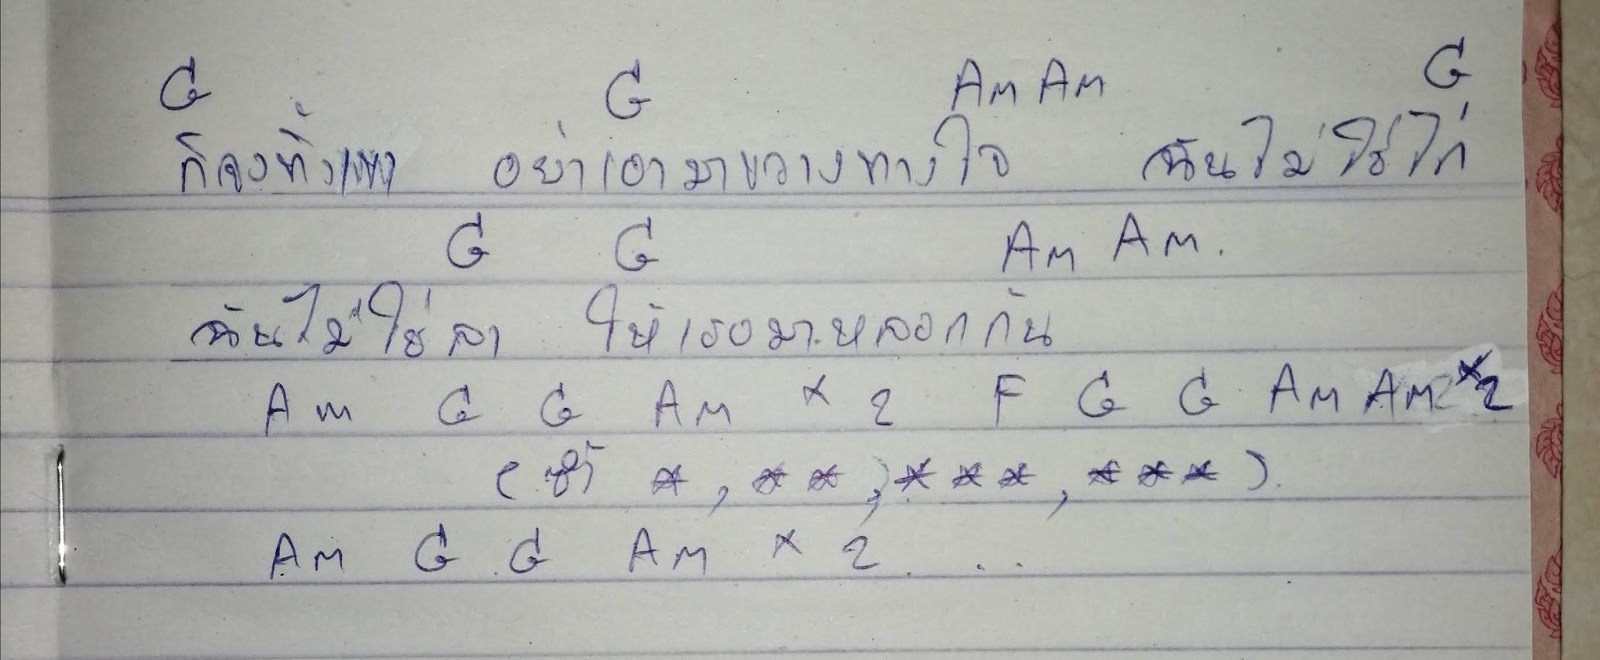 G G Am Am G
ก็จงทิ้ง อย่าเอามาขวางทางใจ ฉันไม่ใช่ไก่
G G Am Am.
ฉันไม่ใช่ลา ให้เธอมาหลอกกัน
Am G G Am × 2 F G G Am Am × 2
(ซ้ำ *, **, ***, ***).
Am G G Am × 2 . . .